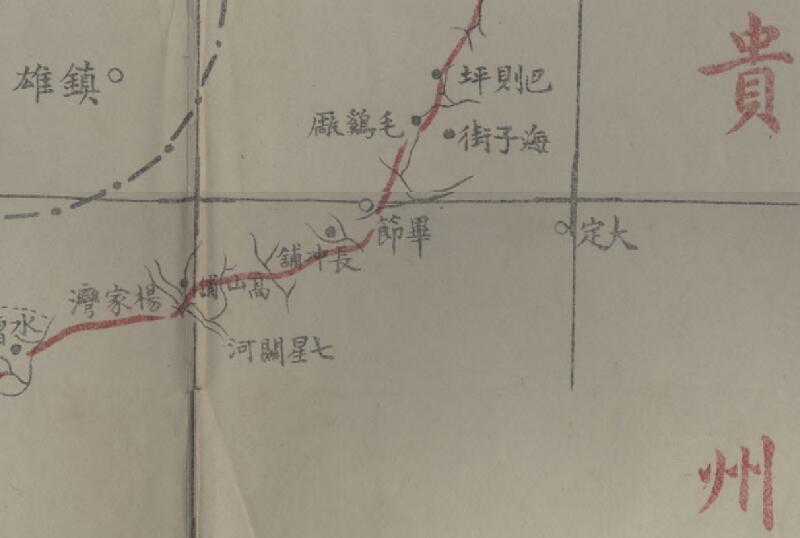 貴
州
鎮雄
巴則坪
毛鷄厰
海子街
畢節
大定
長冲舖
高山舖
楊家灣
七星關河
水